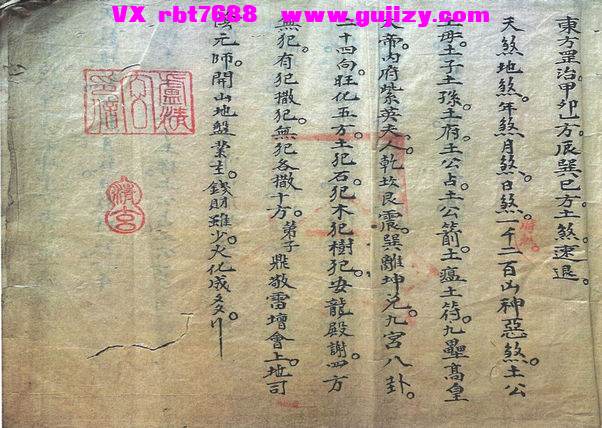 VX rbt7688  www.gujizy.com
東方罡治甲卯乙方。辰巽巳方。土煞速退。
天煞地煞。年煞月煞日煞。一千二百凶神惡煞。土公
土母。土子土孫。土府土公占。土公箭。土瘟土符。九壘高皇
大帝。內府紫英夫人。乾坎艮震。巽離坤兌。九宮八卦。
二十四向。旺化五方。土犯石犯。木犯樹犯。安龍殿謝。四方
無犯。有犯撒犯。無犯各撒十方。弟子鼎敬雷壇會上。地司
元師。開山地盤業主。錢財雖少。火化成多。